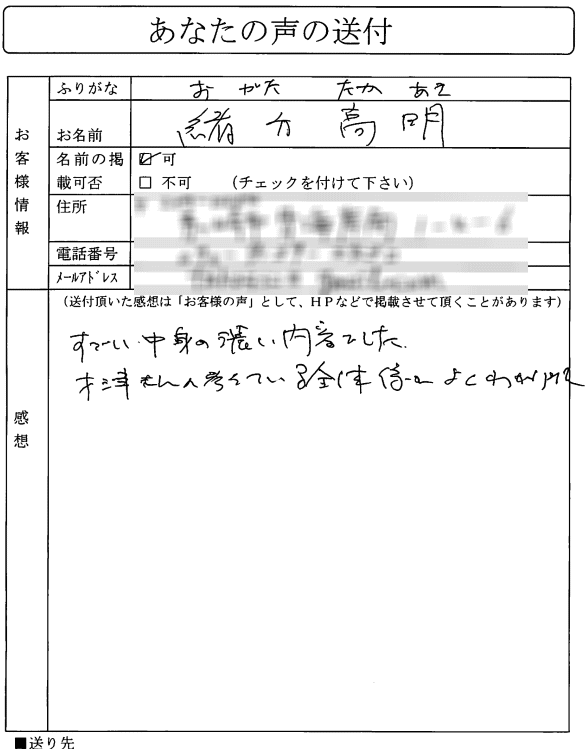 あなたの声の送付
お客様情報
ふりがな おがた たかあき
お名前 緒方 高明
名前の掲載可否 ☑ 可
□ 不可 (チェックを付けて下さい)
住所
電話番号
メールアドレス
感想
(送付頂いた感想は「お客様の声」として、HPなどで掲載させて頂くことがあります)
すごい中身の濃い内容でした.
木津さんの考えている全体像が よくわかり
■送り先